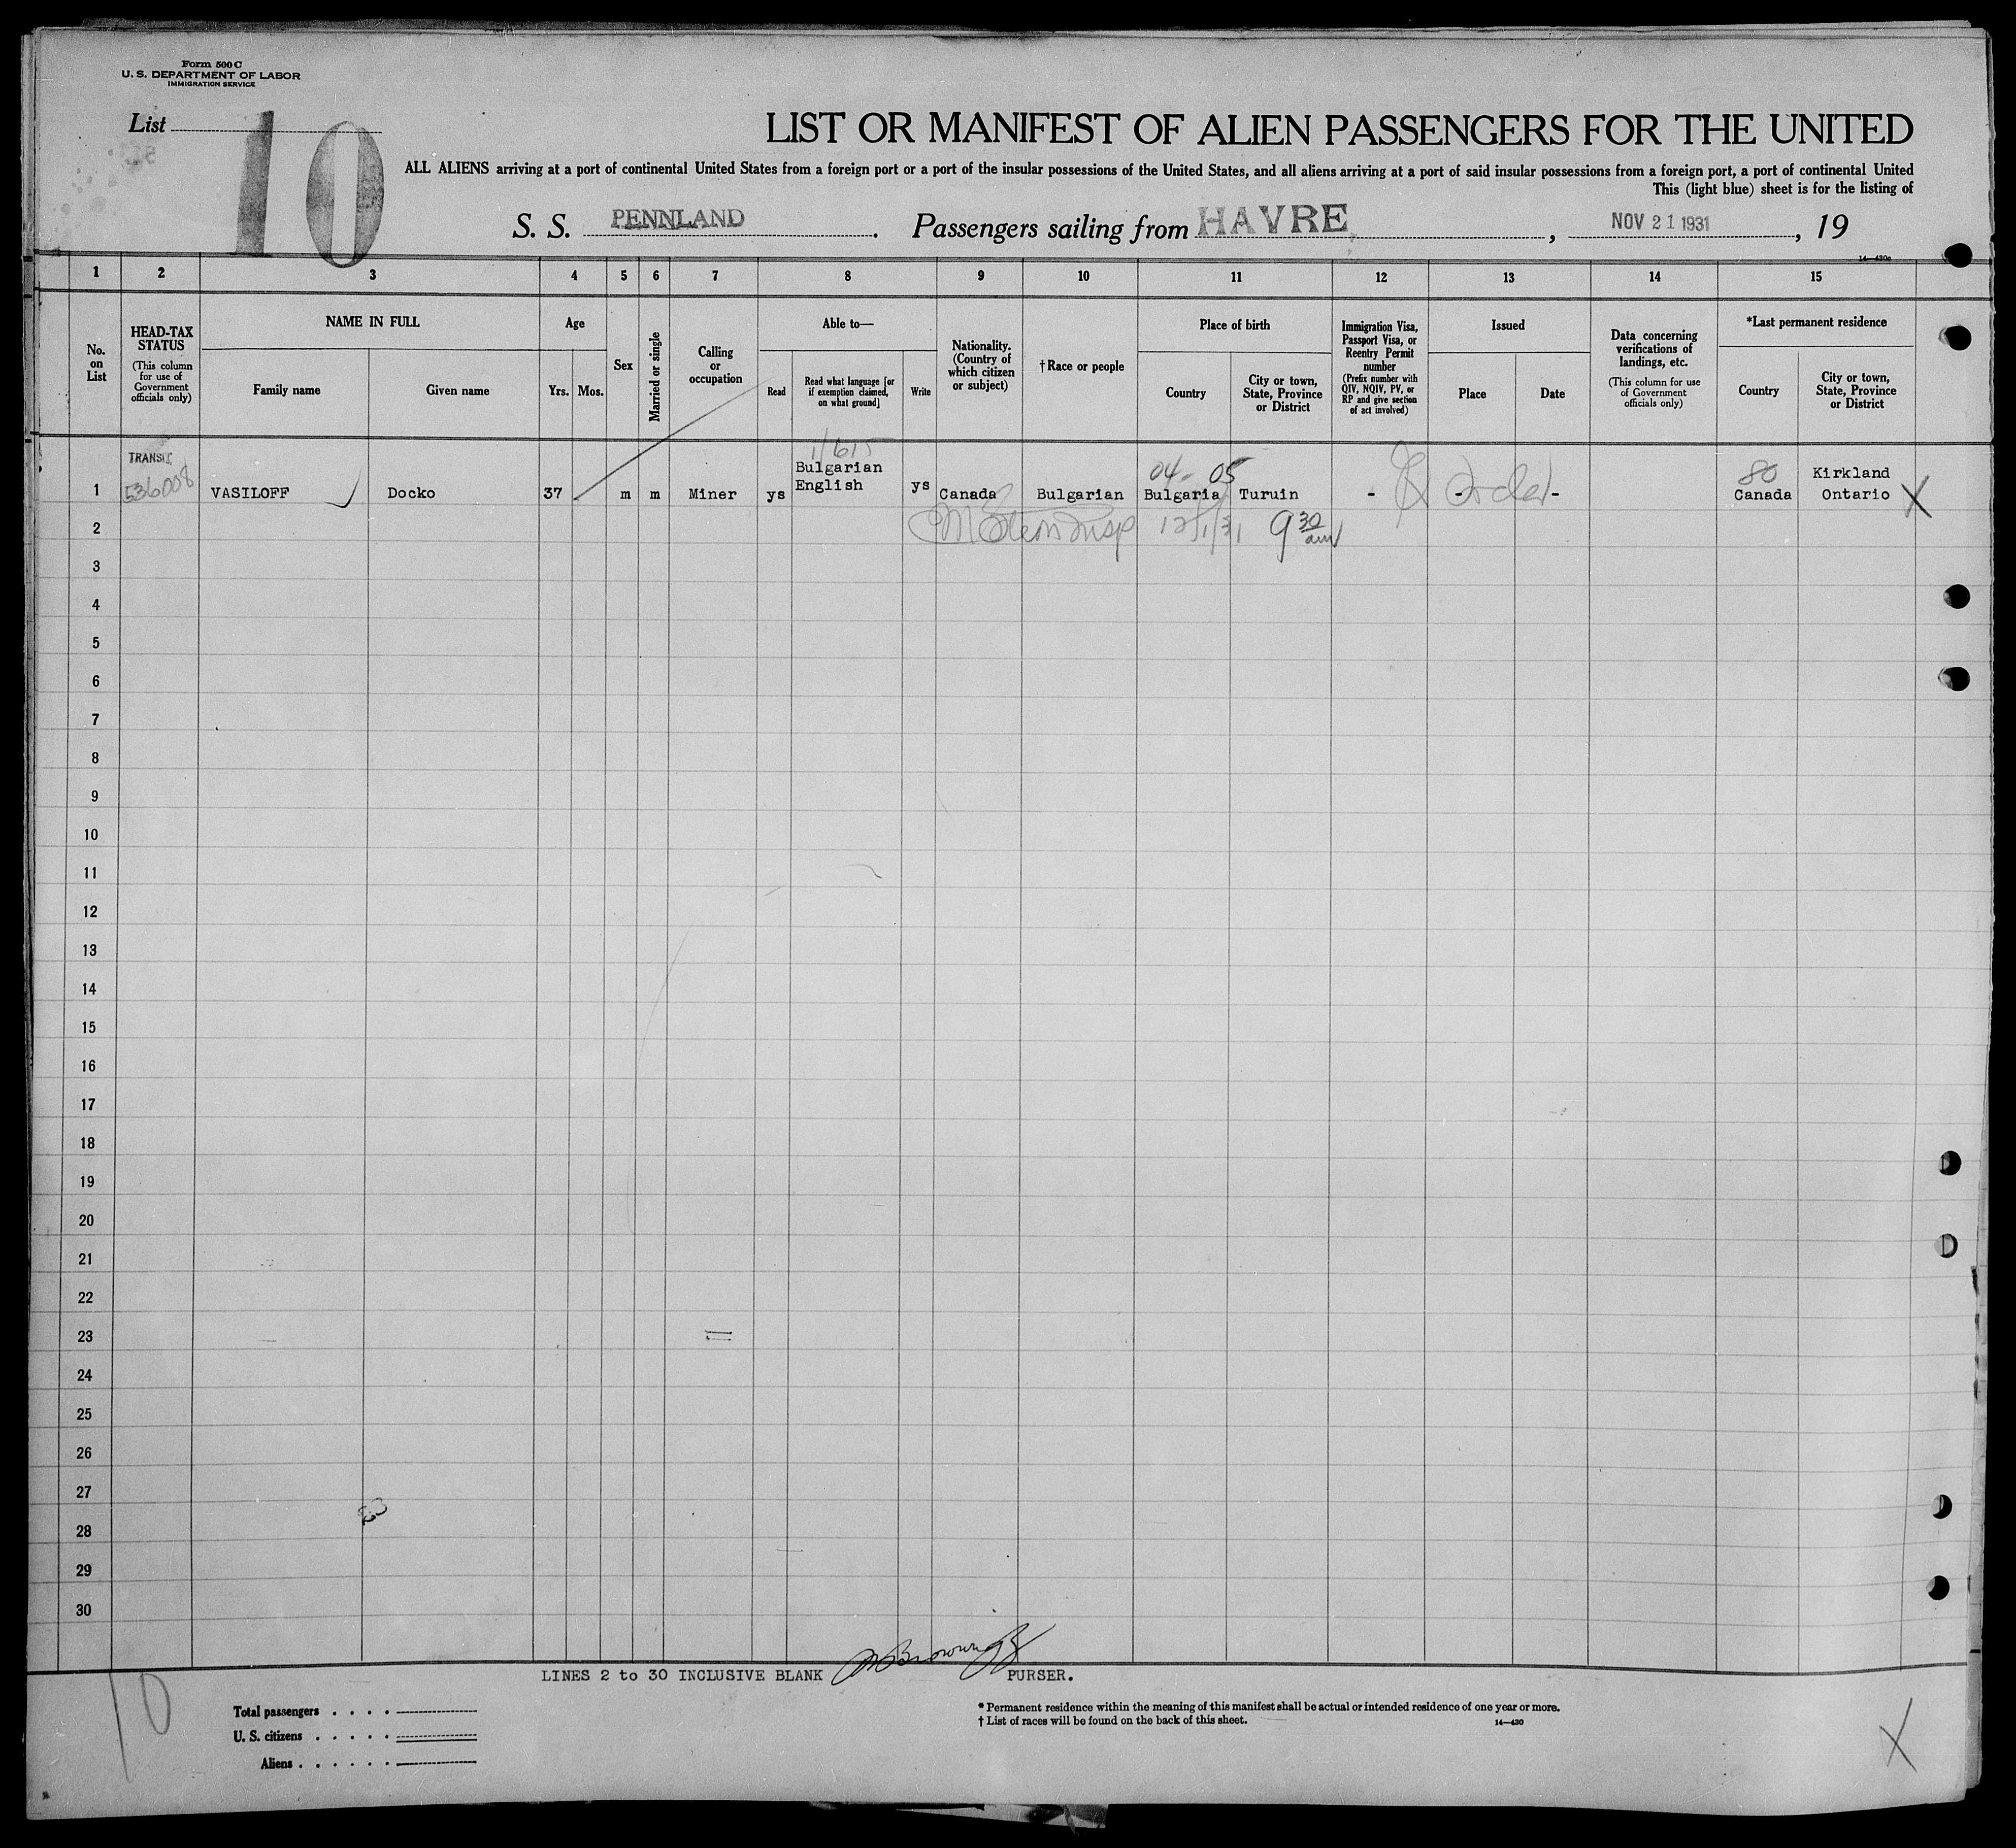 Form 500 C
U. S. DEPARTMENT OF LABOR
IMMIGRATION SERVICE
List
10
LIST OR MANIFEST OF ALIEN PASSENGERS FOR THE UNITED
ALL ALIENS arriving at a port of continental United States from a foreign port or a port of the insular possessions of the United States, and all aliens arriving at a port of said insular possessions from a foreign port, a port of continental United
This (light blue) sheet is for the listing of
S. S. PENNLAND. Passengers sailing from HAVRE, NOV 21 1931, 19
14—430c
1 2 3 4 5 6 7 8 9 10 11 12 13 14 15
No. on List
HEAD-TAX STATUS
(This column for use of Government officials only)
NAME IN FULL
Family name
Given name
Age
Yrs. Mos.
Sex
Married or single
Calling or occupation
Able to—
Read
Read what language [or if exemption claimed, on what ground]
Write
Nationality. (Country of which citizen or subject)
†Race or people
Place of birth
Country
City or town, State, Province or District
Immigration Visa, Passport Visa, or Reentry Permit number
(Prefix number with QIV, NQIV, PV, or RP and give section of act involved)
Issued
Place
Date
Data concerning verifications of landings, etc.
(This column for use of Government officials only)
*Last permanent residence
Country
City or town, State, Province or District
TRANSIT
536008
1/615
04- 05
80
1 VASILOFF Docko 37 m m Miner ys Bulgarian English ys Canada Bulgarian Bulgaria Turuin - - - Canada Kirkland Ontario X
2 Insp 12/1/31 9 30 am
3
4
5
6
7
8
9
10
11
12
13
14
15
16
17
18
19
20
21
22
23
24
25
26
27
28
29
30
LINES 2 to 30 INCLUSIVE BLANK PURSER.
10
Total passengers . . . .
U. S. citizens . . . . .
Aliens . . . . . .
* Permanent residence within the meaning of this manifest shall be actual or intended residence of one year or more.
† List of races will be found on the back of this sheet.
14—430
X